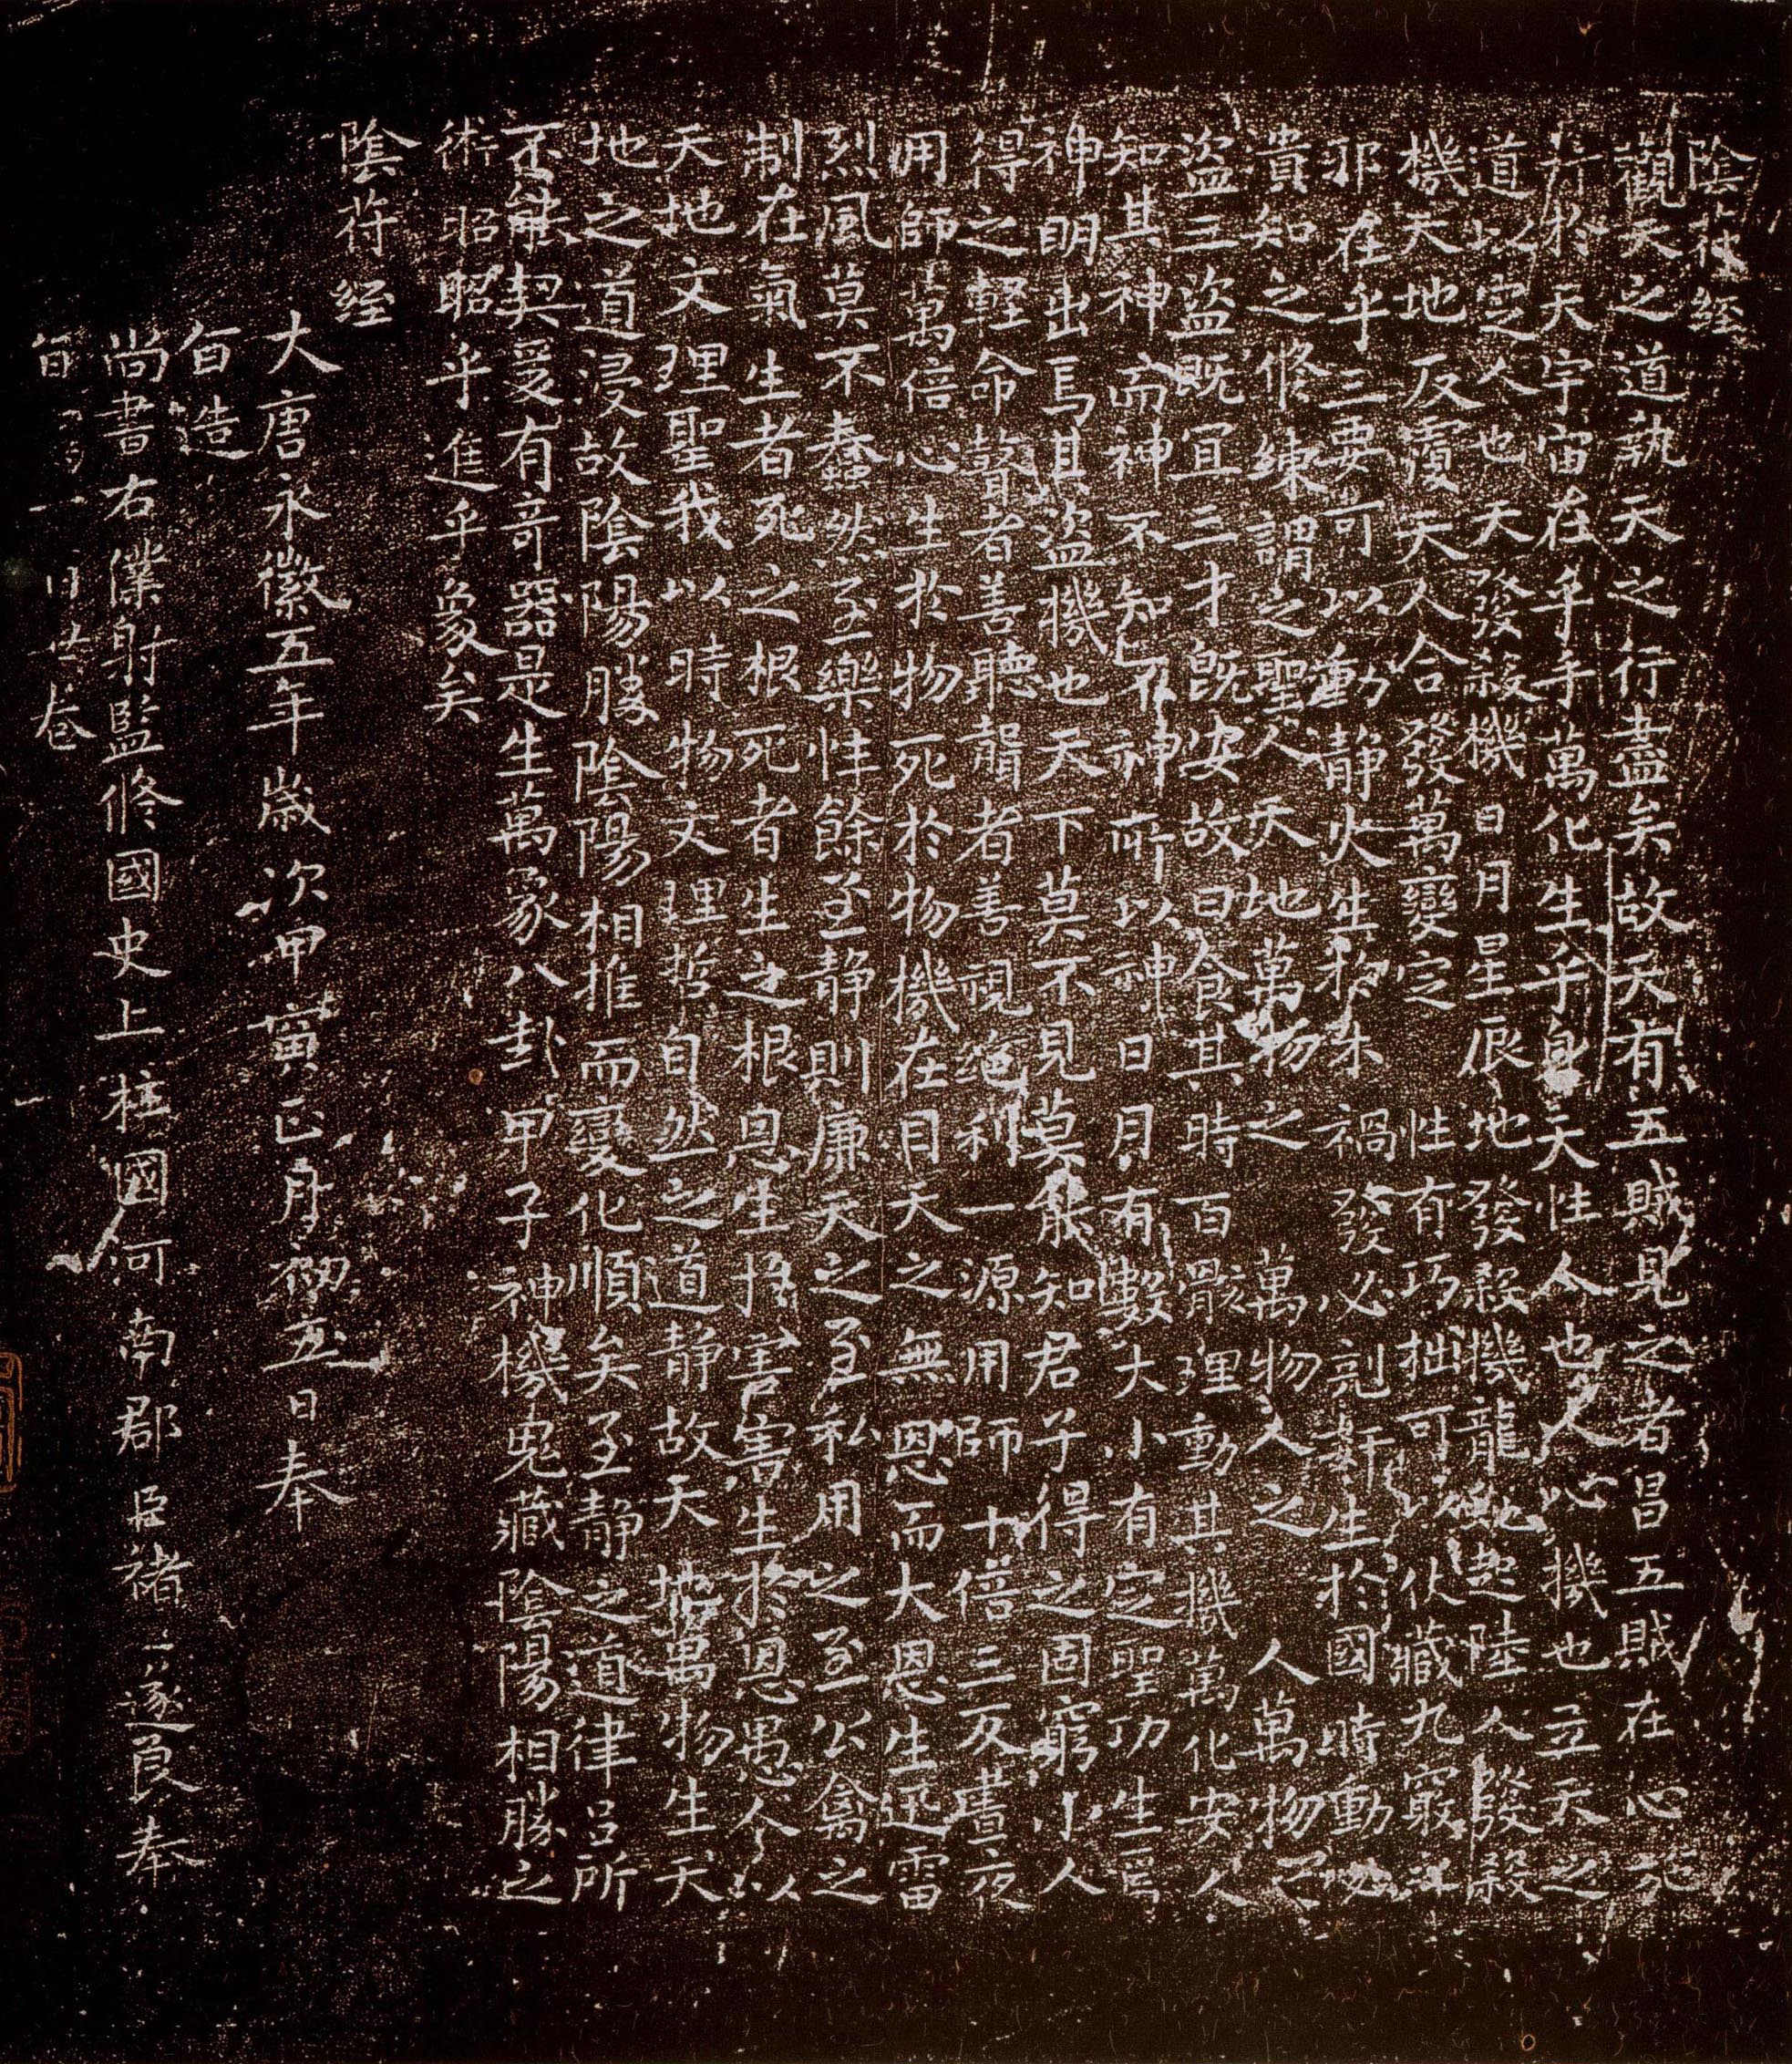 陰符經
觀天之道執天之行盡矣故天有五賊見之者昌五賊在心施
行於天宇宙在乎手萬化生乎身天性人也人心機也立天之
道以定人也天發殺機日月星辰地發殺機龍蛇起陸人發殺
機天地反覆天人合發萬變定性有巧拙可以伏藏九竅之
邪在乎三要可以動静火生於木禍發必剋姧生於國時動必
潰知之修練謂之聖人天地萬物之萬物人之人萬物之
盗三盗既宜三才既安故曰食其時百骸理動其機萬化安人
知其神而神不知不神所以神日月有數大小有定聖功生焉
神明出焉其盗機也天下莫不見莫能知君子得之固窮小人
得之輕命瞽者善聽聾者善視絕利一源用師十倍三反晝夜
用師萬倍心生於物死於物機在目天之無恩而大恩生迅雷
烈風莫不蠢然至樂性餘至静則廉天之至私用之至公禽之
制在氣生者死之根死者生之根恩生於害害生於恩愚人以
天地文理聖我以時物文理哲自然之道静故天地萬物生天
地之道浸故陰陽勝陰陽相推而變化順矣至静之道律呂所
不能契爰有奇器是生萬象八卦甲子神機鬼藏陰陽相勝之
術昭昭乎進乎象矣
陰符經
大唐永徽五年歲次甲寅正月初五日奉
旨造
尚書右僕射監修國史上柱國河南郡臣褚遂良奉
旨
卷